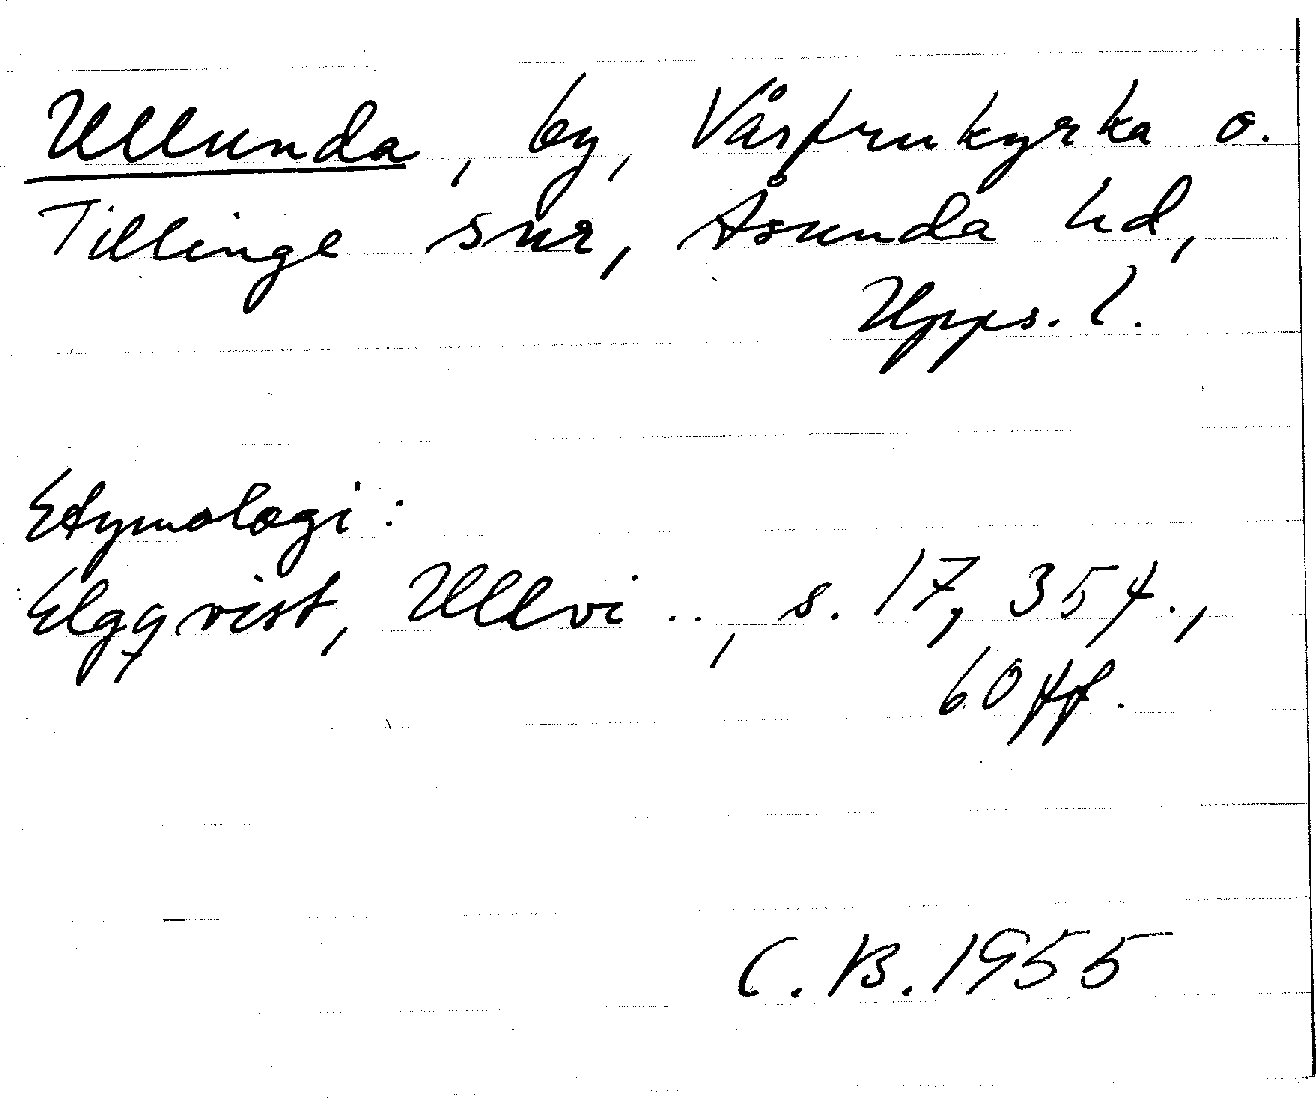 Ullunda, by, Vårfrukyrka o.
Tillinge snr, Åsunda hd,
Upps. l.
Etymologi:
Elgqvist, Ullvi .., s. 17, 35 f.,
60 ff.
C. B. 1955